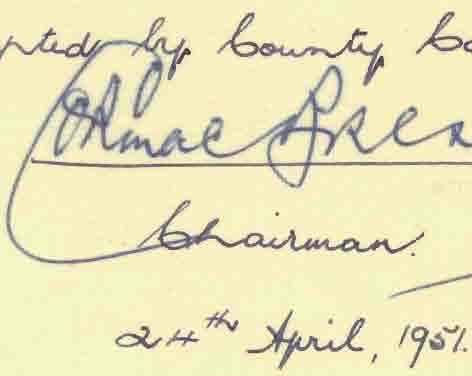 pted by County Co
Cormac Bresl
Chairman.
24th April, 1951.